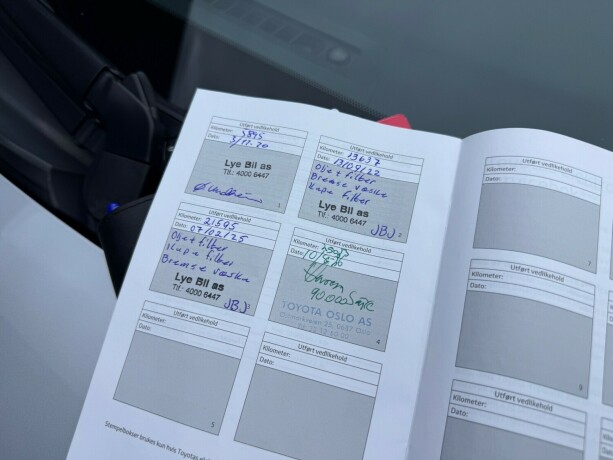 Utført vedlikehold
Kilometer: 3895
Dato: 3/11-20
Lye Bil as
Tlf.: 4000 6447
1
Utført vedlikehold
Kilometer: 13637
Dato: 13/09/22
Olje + filter
Bremse væske
Kupe filter
Lye Bil as
Tlf.: 4000 6447
JBJ
2
Utført vedlikehold
Kilometer: 21595
Dato: 07/02/25
Olje + filter
Kupe filter
Bremse væske
Lye Bil as
Tlf.: 4000 6447
JBJ
Utført vedlikehold
Kilometer:
Dato:
90000
TOYOTA OSLO AS
0487 Oslo
4
Utført vedlikehold
Kilometer:
Dato:
5
Utført vedlikehold
Kilometer:
Dato:
Stempelbokser brukes kun hvis Toyotas
Utført vedlikehold
Kilometer:
Dato:
7
Utført vedlikehold
Kilometer:
Dato:
9
Utført vedlikehold
Kilometer:
Dato: